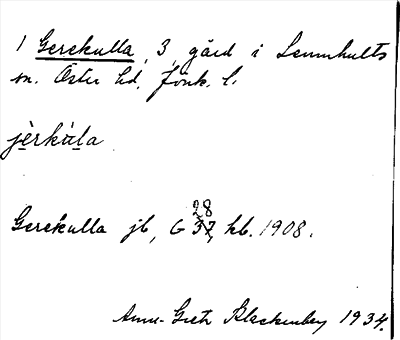 1 Gerekulla, 3, gård i Lemnhults
sn. Östra hd, Jönk. l.
jèrkùla
Gerekulla jb, G 28 37, kb. 1908.
Anna-Greta Blackenberg 1934.